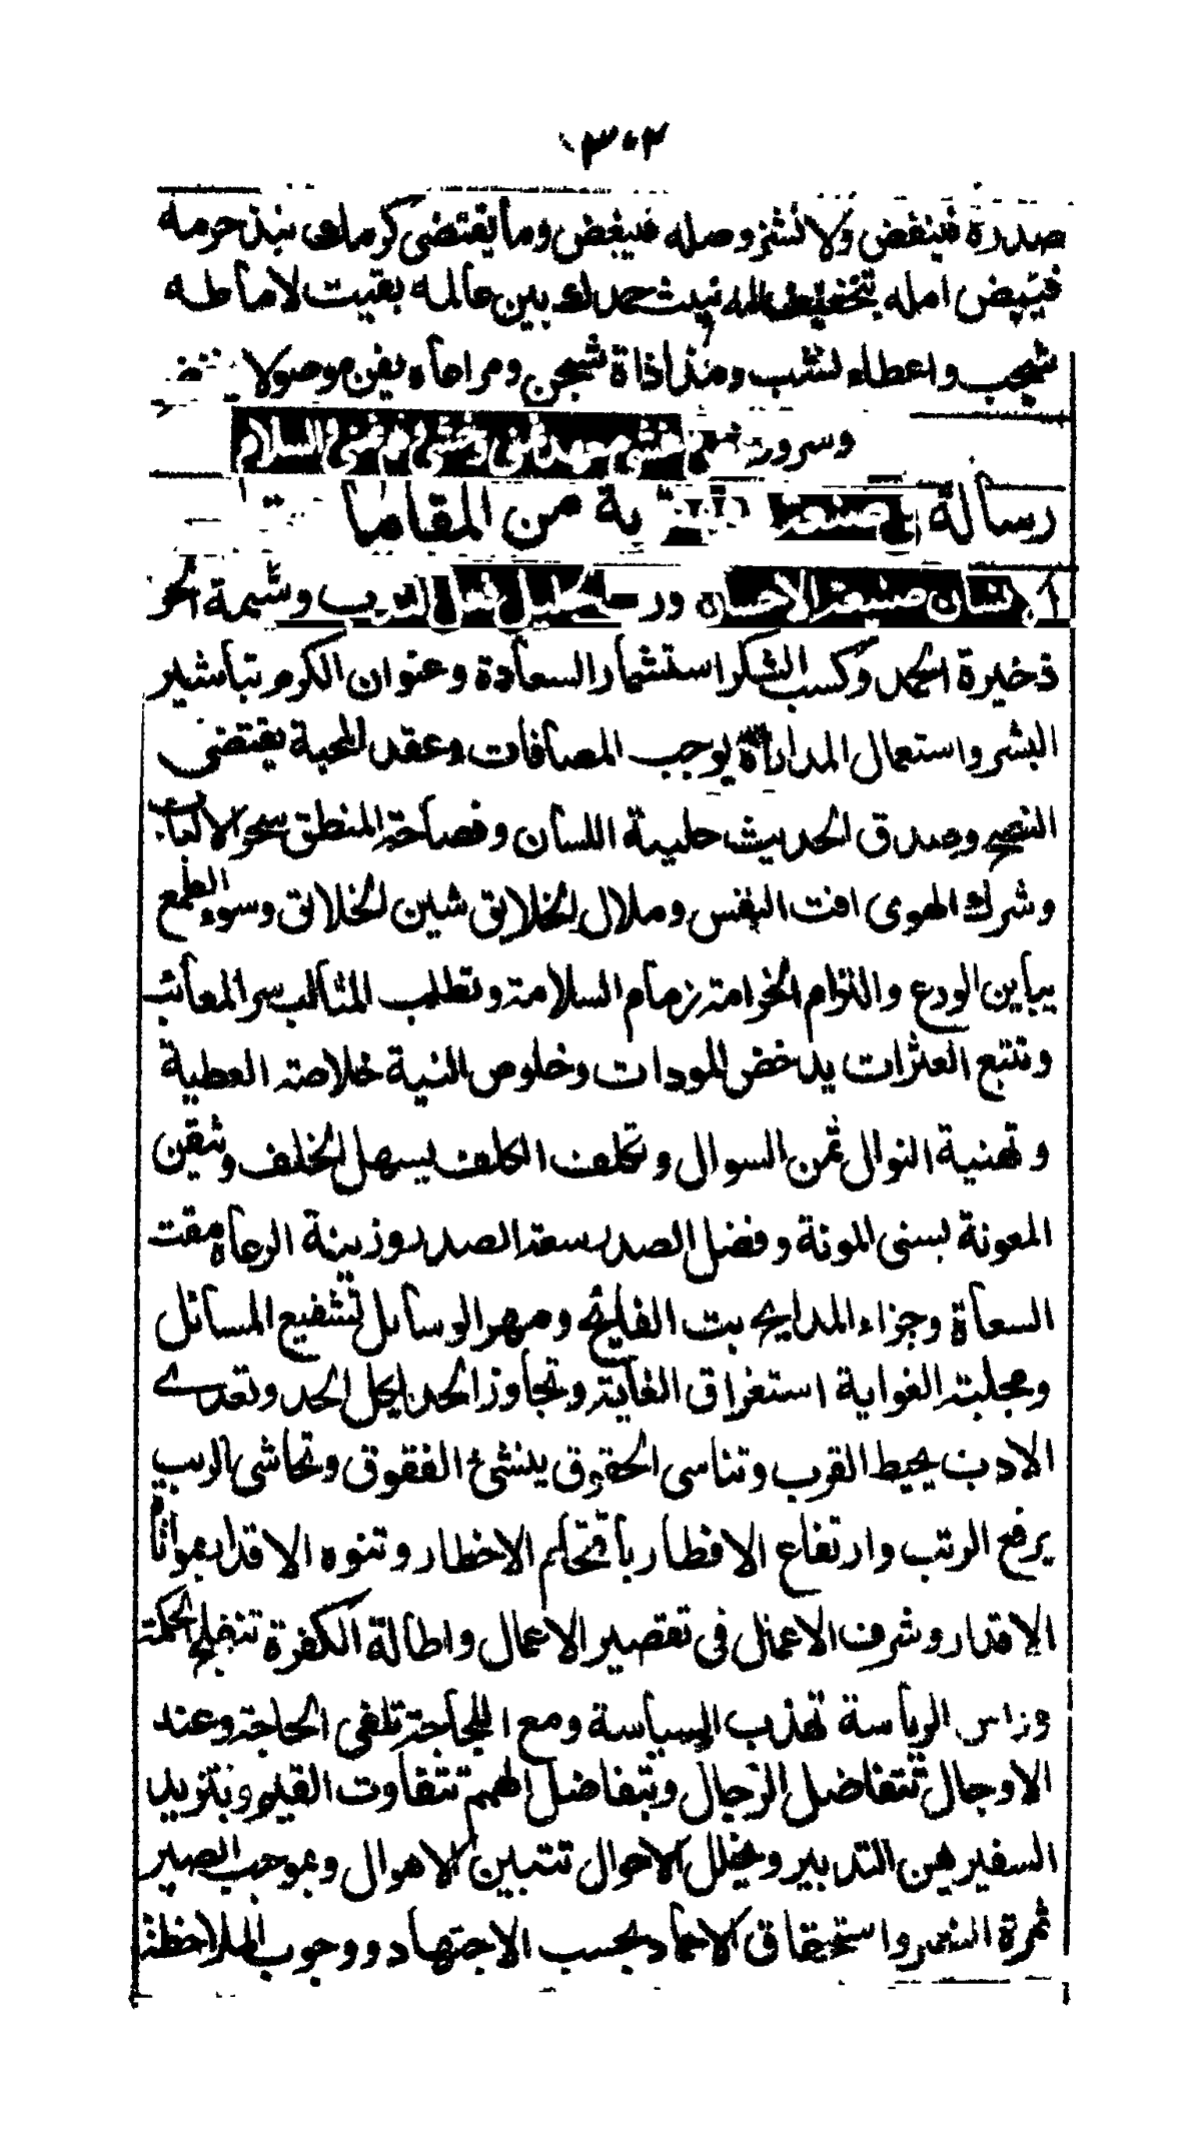 ٣٠٢
صدره فينفض ولا نشز وصله فيبغض وما يقتضى كرمك نبذ حرمه
فبيض امله بتخفيف المه ينث حمدك بين عالمه بقيت لاماطة
شجب واعطاء نشب ومداواة شجن ومراعاة يفن موصولا بخفض
وسرور
رسالة صنعة من المقامات
الانسان صنيعة الاحسان ورب الجميل فعل الندب وشيمة الحر
ذخيرة الحمد وكسب الشكر استثمار السعادة وعنوان الكرم تباشير
البشر واستعمال المداراة يوجب المصافات وعقد المحبة يقتضى
النصح وصدق الحديث حلية اللسان وفصاحة المنطق سحر الالباب
وشرك الهوى افت النفس وملال الخلائق شين الخلائق وسوء الطمع
يباين الورع والتزام الخزامة زمام السلامة وتطلب المثالب سر المعائب
وتتبع العثرات يدخض المودات وخلوص النية خلاصة العطية
وتهنية النوال ثمن السوال وتكلف الكلف يسهل الخلف وتيقن
المعونة يسنى المونة وفضل الصدر سعة الصدر وزينة الرعاة مقت
السعاة وجزاء المدايح بث الفايح ومهر الوسايل تشفيع المسائل
ومجلبة الغواية استغراق الغاية وتجاوز الحد يكل الحد وتعدى
الادب يحبط القرب وتناسى الحقوق ينشئ العقوق وتحاشى الريب
يرفع الرتب وارتفاع الاخطار باقتحام الاخطار وتنوه الاقدار بمواتاة
الاقدار وشرف الاعمال فى تقصير الامال واطالة الفكرة تنقيح الحكمة
وراس الرياسة تهذب السياسة ومع اللجاجة تلغى الحاجة وعند
الاوجال تتفاضل الرجال وبتفاضل الهمم تتفاوت القيم وبتزيد
السفير يهن التدبير وبخلل الاحوال تتبين الاهوال وبموجب الصبر
ثمرة النصر واستحقاق الاحماد بحسب الاجتهاد ووجوب الملاحظة